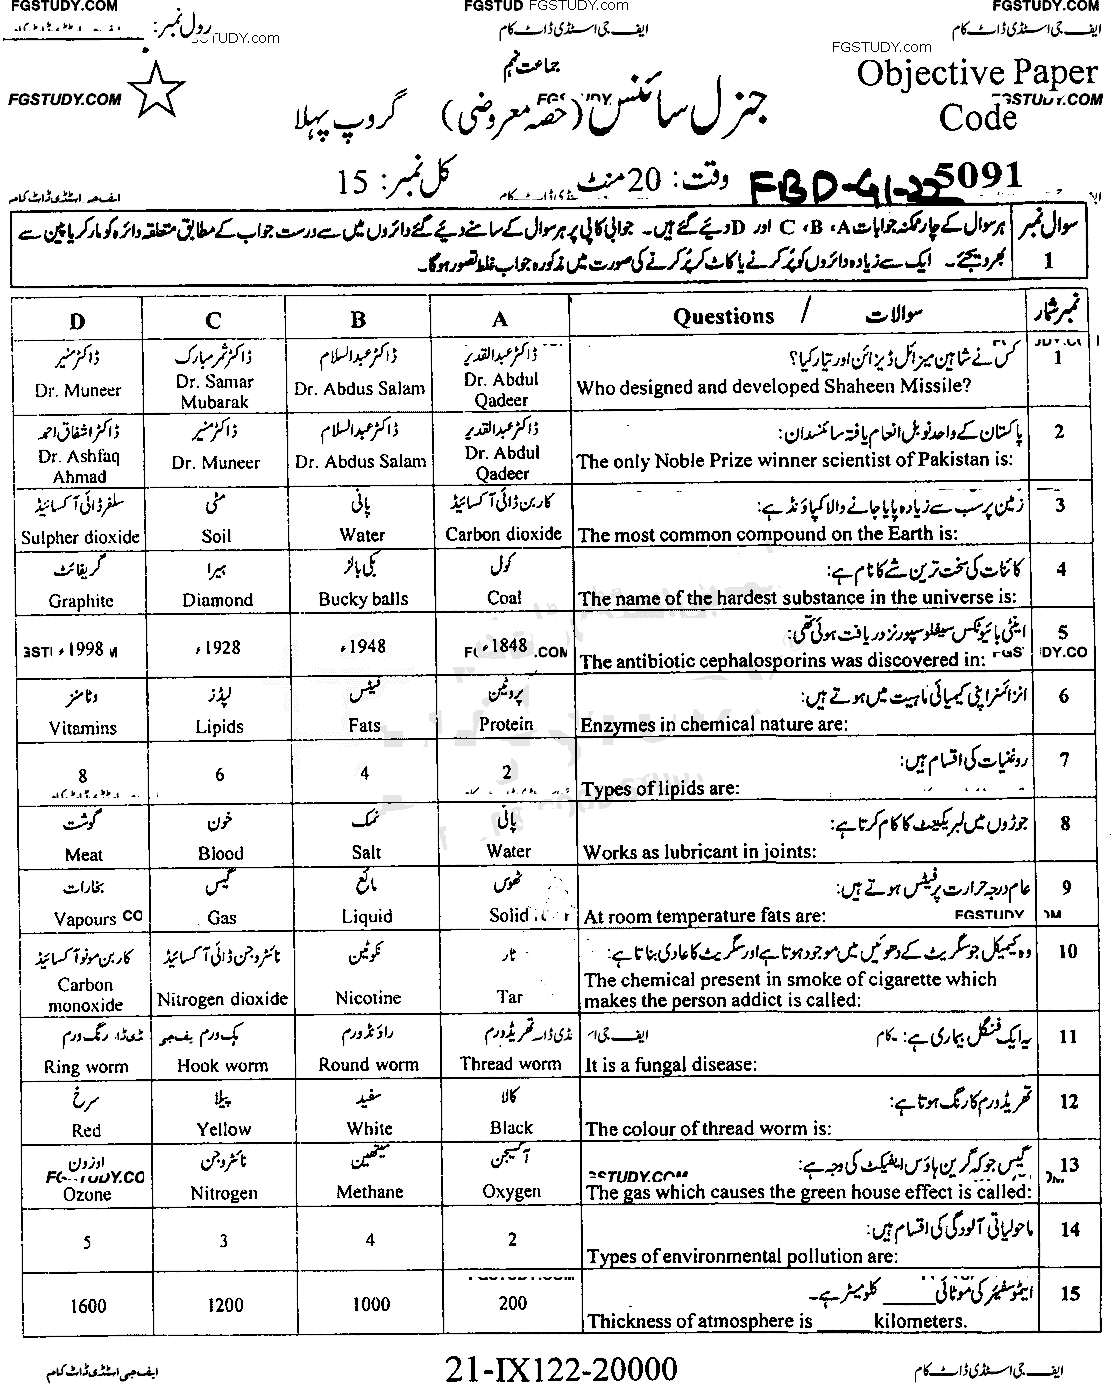 FGSTUDY.COM FGSTUD FGSTUDY.com FGSTUDY.COM
رول نمبر: FGSTUDY.com ایف جی اسٹڈی ڈاٹ کام ایف جی اسٹڈی ڈاٹ کام
FGSTUDY.com
جماعت نہم
Objective Paper
FGSTUDY.COM
جنرل سائنس (حصہ معروضی) گروپ پہلا
Code
وقت: 20 منٹ کل نمبر: 15
FBD-G1-22 5091
سوال نمبر 1
ہر سوال کے چار ممکنہ جوابات A، B، C اور D دیئے گئے ہیں۔ جوابی کاپی پر ہر سوال کے سامنے دیئے گئے دائروں میں سے درست جواب کے مطابق متعلقہ دائرہ کو مارکر یا پین سے
بھر دیجئے۔ ایک سے زیادہ دائروں کو پُر کرنے یا کاٹ کر پُر کرنے کی صورت میں مذکورہ جواب غلط تصور ہوگا۔
D C B A Questions / سوالات نمبر شمار
ڈاکٹر منیر ڈاکٹر ثمر مبارک ڈاکٹر عبدالسلام ڈاکٹر عبدالقدیر کس نے شاہین میزائل ڈیزائن اور تیار کیا؟ 1
Dr. Muneer Dr. Samar Mubarak Dr. Abdus Salam Dr. Abdul Qadeer Who designed and developed Shaheen Missile?
ڈاکٹر اشفاق احمد ڈاکٹر منیر ڈاکٹر عبدالسلام ڈاکٹر عبدالقدیر پاکستان کے واحد نوبل انعام یافتہ سائنسدان: 2
Dr. Ashfaq Ahmad Dr. Muneer Dr. Abdus Salam Dr. Abdul Qadeer The only Noble Prize winner scientist of Pakistan is:
سلفر ڈائی آکسائیڈ مٹی پانی کاربن ڈائی آکسائیڈ زمین پر سب سے زیادہ پایا جانے والا کمپاؤنڈ ہے: 3
Sulpher dioxide Soil Water Carbon dioxide The most common compound on the Earth is:
گریفائٹ ہیرا بکی بالز کول کائنات کی سخت ترین شے کا نام ہے: 4
Graphite Diamond Bucky balls Coal The name of the hardest substance in the universe is:
1998ء 1928ء 1948ء 1848ء اینٹی بائیوٹکس سیفلوسپورنز دریافت ہوئی تھی: 5
The antibiotic cephalosporins was discovered in:
وٹامنز لپڈز فیٹس پروٹین انزائمز اپنی کیمیائی ماہیت میں ہوتے ہیں: 6
Vitamins Lipids Fats Protein Enzymes in chemical nature are:
8 6 4 2 روغنیات کی اقسام ہیں: 7
Types of lipids are:
گوشت خون نمک پانی جوڑوں میں لبریکینٹ کا کام کرتا ہے: 8
Meat Blood Salt Water Works as lubricant in joints:
بخارات گیس مائع ٹھوس عام درجہ حرارت پر فیٹس ہوتے ہیں: 9
Vapours Gas Liquid Solid At room temperature fats are: FGSTUDY
کاربن مونو آکسائیڈ نائٹروجن ڈائی آکسائیڈ نکوٹین ٹار وہ کیمیکل جو سگریٹ کے دھوئیں میں موجود ہوتا ہے اور سگریٹ کا عادی بناتا ہے: 10
Carbon monoxide Nitrogen dioxide Nicotine Tar The chemical present in smoke of cigarette which
makes the person addict is called:
رنگ ورم ہک ورم راؤنڈ ورم تھریڈ ورم یہ ایک فنگل بیماری ہے: 11
Ring worm Hook worm Round worm Thread worm It is a fungal disease:
سرخ پیلا سفید کالا تھریڈ ورم کا رنگ ہوتا ہے: 12
Red Yellow White Black The colour of thread worm is:
اوزون نائٹروجن میتھین آکسیجن گیس جو کہ گرین ہاؤس ایفیکٹ کی وجہ ہے: 13
Ozone Nitrogen Methane Oxygen The gas which causes the green house effect is called:
5 3 4 2 ماحولیاتی آلودگی کی اقسام ہیں: 14
Types of environmental pollution are:
1600 1200 1000 200 ایٹموسفیئر کی موٹائی _____ کلومیٹر ہے۔ 15
Thickness of atmosphere is _____ kilometers.
ایف جی اسٹڈی ڈاٹ کام 21-IX122-20000 ایف جی اسٹڈی ڈاٹ کام